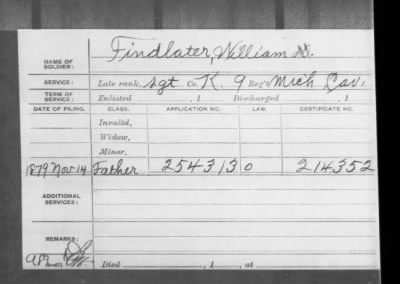 Findlater, William
NAME OF SOLDIER:
SERVICE: Late rank, Sgt Co. K, 9 Reg't Mich Cav
TERM OF SERVICE: Enlisted , 1 Discharged , 1
DATE OF FILING. CLASS. APPLICATION NO. LAW. CERTIFICATE NO.
Invalid,
Widow,
Minor,
1879 Nov 14 Father 254313 0 214352
ADDITIONAL SERVICES:
REMARKS:
Died , 1 , at